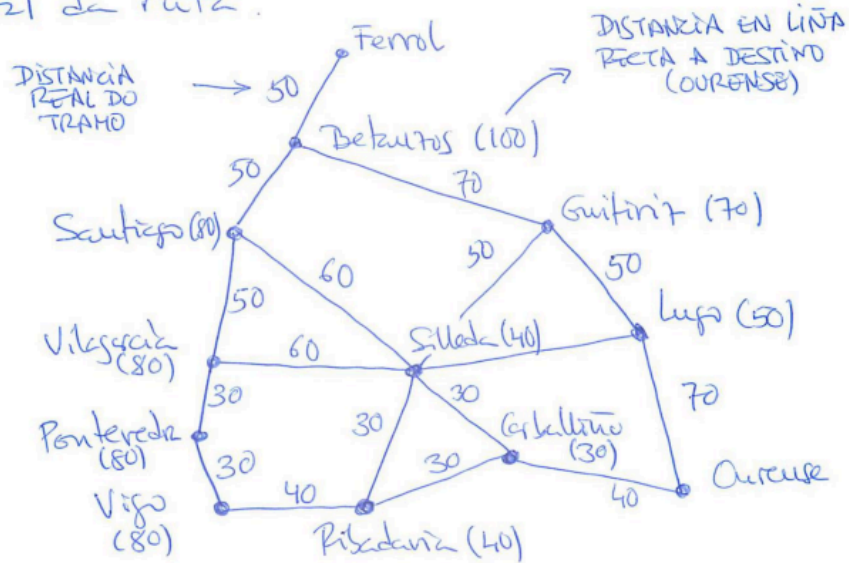 da ruta.
Ferrol
DISTANCIA REAL DO TRAMO
50
DISTANZIA EN LIÑA
RECTA A DESTINO
(OURENSE)
Betanzos (100)
50
70
Santiago (80)
Guitiriz (70)
60
50
50
50
Lugo (50)
Vilagarcía
(80)
60
Silleda (40)
30
30
70
Pontevedra
(80)
30
Carballiño
(30)
30
30
Ourense
Vigo
(80)
40
40
Ribadavia (40)